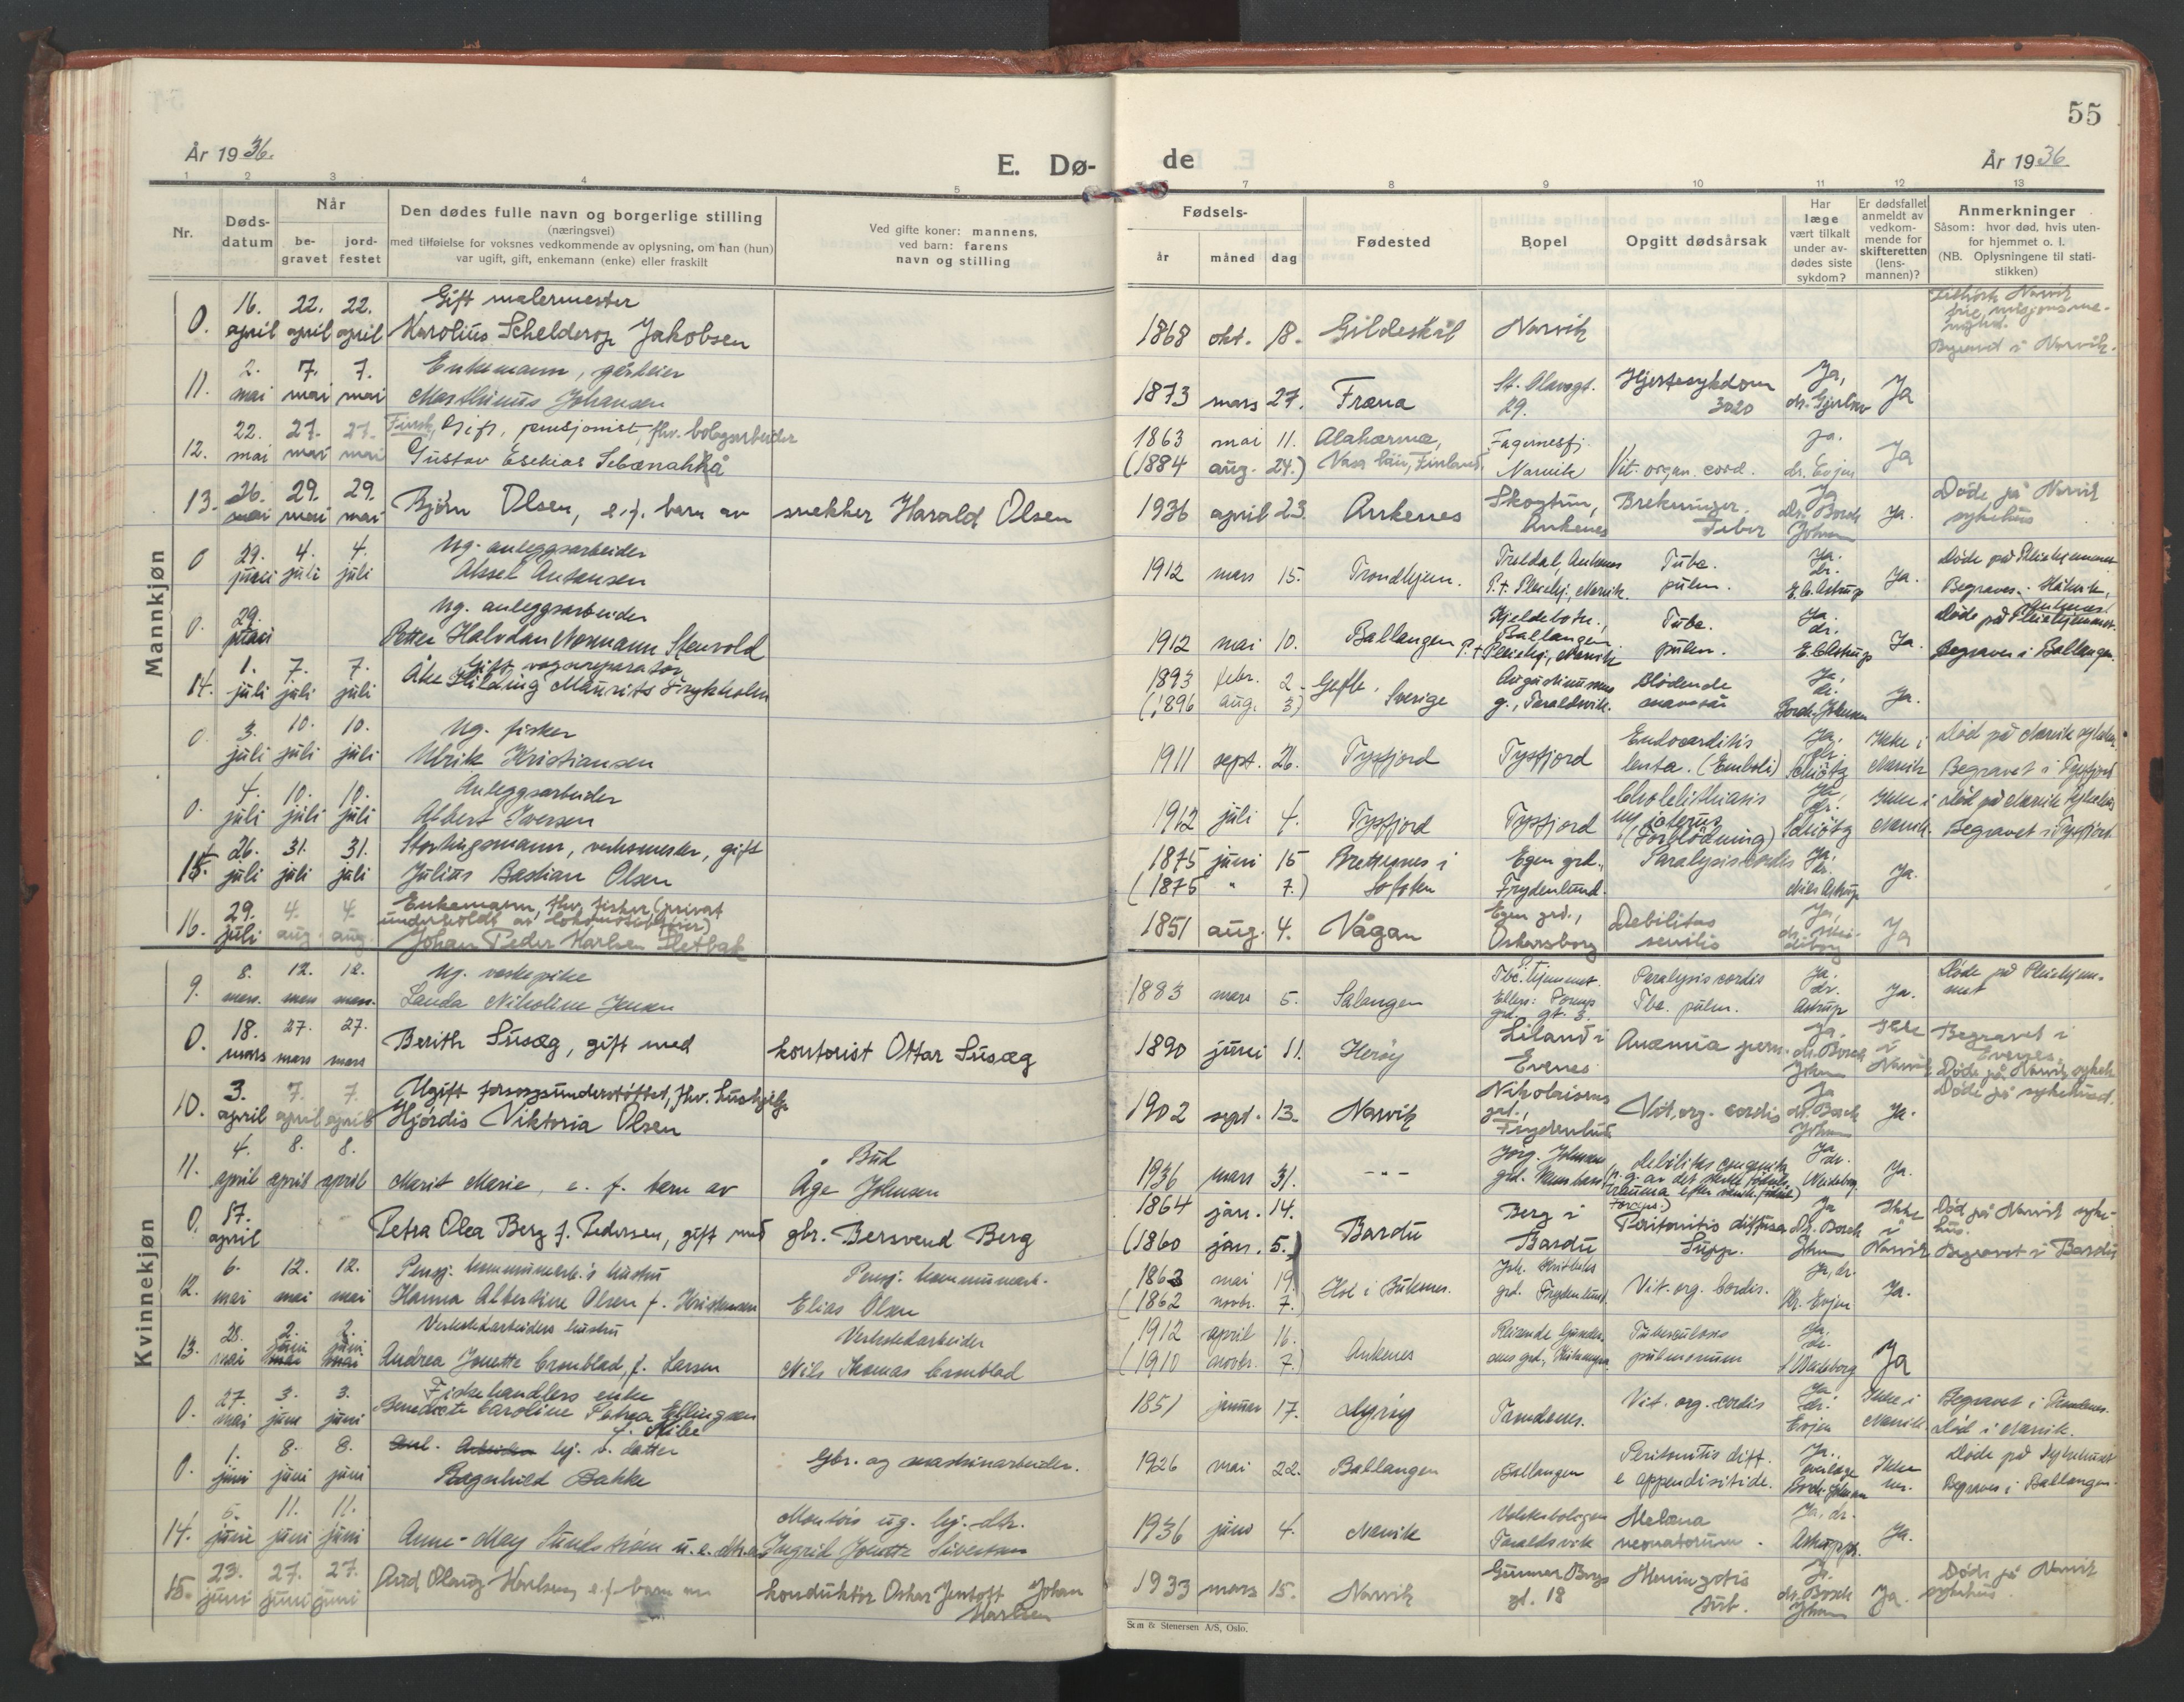 55
År 1936.
E. Dø-
de
År 1936
1 2 3 4 5 7 8 9 10 11 12 13
Nr.
Døds-
datum
Når
be-
gravet
jord-
festet
Den dødes fulle navn og borgerlige stilling
(næringsvei)
med tilføielse for voksnes vedkommende av oplysning, om han (hun)
var ugift, gift, enkemann (enke) eller fraskilt
Ved gifte koner: mannens,
ved barn: farens
navn og stilling
Fødsels-
år måned dag
Fødested
Bopel
Opgitt dødsårsak
Har
læge
vært tilkalt
under av-
dødes siste
sykdom?
Er dødsfallet
anmeldt av
vedkom-
mende for
skifteretten
(lens-
mannen)?
Anmerkninger
Såsom: hvor død, hvis uten-
for hjemmet o. l.
(NB. Oplysningene til stati-
stikken)
Mannkjøn
16. 22. 22. Gift malermester
0. april april april Karolius Schelderop Jakobsen
1868 okt. 18. Gildeskål Narvik
Begravd i Narvik.
2. 7. 7. Enkemann, gårdeier
11. mai mai mai Marthinus Johansen
1873 mars 27. Fræna St. Olavsgt. 29. Hjertesykdom 3020 Ja, dr. Ja
22. 27. 27. Finsk, Gift, pensjonist, fhv. bolagsarbeider
12. mai mai mai Gustav Esekias
1863 mai 11. Alahærmæ, Fagernesfj. Ja.
(1884 aug. 24.) Vasa län, Finland. Narvik Vit. organ. cord. dr. Evjen Ja
26. 29. 29.
13. mai mai mai Bjørn Olsen, e.f. barn av snekker Harald Olsen
1936 april 23. Ankenes Ankenes Brekninger. Feber Ja Dr. Borch Johnsen Ja. Døde på Narvik sykehus
29. 4. 4. Ug. anleggsarbeider
0 juni juli juli Aksel Antonsen
1912 mars 15. Trondhjem. Treldal, Ankenes P.t. Pleiehj., Narvik. Tubc. pulm. Ja. dr. E. C. Astrup Ja. Døde på Pleiehjemmet
Begraves i Håkvik, Ankenes.
29. Ug. anleggsarbeider
0. juni Petter Halvdan Normann Stenvold
1912 mai 10. Ballangen Kjeldebotn, Ballangen P.t. Pleiehj., Narvik Tubc. pulm. Ja. dr. E. C. Astrup Ja. Døde på Pleiehjemmet.
Begraves i Ballangen.
1. 7. 7. Gift, vognreparatør
14. juli juli juli Åke Hilding Maurits Frykholm
1893 febr. 2 Gefle, Sverige g., Taraldsvik. Blødende mavesår Ja, dr. Borch-Johnsen Ja.
(1896 aug. 3)
3. 10. 10. Ug. fisker
0. juli juli juli Ulrik Kristiansen
1911 sept. 26. Tysfjord Tysfjord Endocarditis lenta. (Emboli) Ja. dr. Schiötz Ikke i Narvik Død på Narvik sykehus.
Begravet i Tysfjord
4. 10. 10. Anleggsarbeider
0. juli juli juli Albert Iversen
1912 juli 4. Tysfjord Tysfjord Cholelithiasis m/ icterus (Forblödning) Ja, dr. Schiötz Ikke i Narvik. Død på Narvik sykehus
Begravet i Tysfjord.
26. 31. 31. Stortingsmann, verksmester, gift
15. juli juli juli Julius Bastian Olsen
1875 juni 15 Brettesnes i Lofoten Egen grd., Frydenlund. Paralysis cordis Ja. dr. Nils Astrup Ja.
(1875 " 7.)
29. 4. 4. Enkemann, fhv. fisker (privat
underholdt av lokomotivfører)
16. juli aug. aug. Johan Peder Karlsen Sletbak
1851 aug. 4. Vågan Egen grd., Oskarsborg Debilitas senilis Ja, dr. Ja
Kvinnekjøn
8. 12. 12. Ug. vaskepike
9. mars. mars mars. Lauda Nikoline Jensen
1883 mars 5. Salangen Tbc. hjemmet. Paralysis cordis Tbc. pulm. Ja. dr. Astrup Ja. Døde på Pleiehjem-
met
18. 27. 27.
0. mars mars mars Berith Susæg, gift med kontorist Ottar Susæg
1890 juni 11. Herøy Liland i Evenes Anæmia pern. Ja. dr. Borch Johnsen Ikke i Narvik Begravet i Evenes.
Døde på Narvik sykeh.
3. 7. 7. Ugift forsorgsunderstøttet, fhv. hushjelp
10. april april april Hjørdis Viktoria Olsen
1902 sept. 13. Narvik Frydenlund Vit. org. cordis Ja dr. Borch Johnsen Ja. Døde på sykehuset.
4. 8. 8. Bud
11. april april april Marit Marie, e. f. barn av Åge Johnsen
1936 mars 31. -"- Jörg. Johnsen grd. debilitas congenita Ja dr. Weideborg Ja.
17.
0. april Petra Olea Berg f. Pedersen, gift med gbr. Bersvend Berg
1864 jan. 14. Bardu Berg i Bardu Peritonitis diffusa supp. Ja Dr. Borch Johnsen Ikke i Narvik Død på Narvik syke-
hus.
Begravet i Bardu
(1860 jan. 5.)
6. 12. 12. Pensj. kommunearb.'s hustru Pensj. kommunearb.
12. mai mai mai Hanna Albertine Olsen f. Kristensen Elias Olsen
1863 mai 19. Hol i grd. Frydenlund Vit. org. Cordis. Ja, dr. Evjen Ja.
(1862 novbr. 7.)
28. 2. 2. Verkstedarbeiders hustru Verkstedarbeider
13. mai juni juni Andrea Jonette Cronblad, f. Larsen Nils Thomas Cronblad
1912 april 16. Ankenes Tuberkulosis pulmonum Ja. dr. Weideborg Ja
(1910 novbr. 7.)
27. 3. 3. Fiskehandlers enke
0. mai juni juni Benedicte Caroline Petrea Ellingsen
1851 januar 17. Lyngøy Tranöy. Vit. org. cordis Ja. dr. Evjen Ikke i Narvik. Begravet i
Død i Narvik.
1. 8. 8. hj. v. datter Gbr. og maskinarbeider.
0. juni juni juni Ragnhild Bakke
1926 mai 22. Ballangen Ballangen Peritonitis diff. e appendisitide. Ja. overlæge Borch-Johnsen Ikke Døde på Sykehuset
Begraves i Ballangen
5. 11. 11. Montørs ug. hj. dtr.
14. juni juni juni Anne-May Sundstrøm Ingrid Jonette Sivertsen
1936 juni 4. Narvik Taraldsvik Melæna neonatorum. Ja, dr. Ja.
23. 27. 27.
15. juni juni juni Aud Olaug Karlsen, e.f. barn av konduktør Oskar Jentoft Johan Karlsen
1933 mars 15. Narvik Gunnar Bergs gt. 18 Meningitis tub. Ja. dr. Borch Johnsen Ja. Døde på Narvik
sykehus.
Sem & Stenersen A/S, Oslo.